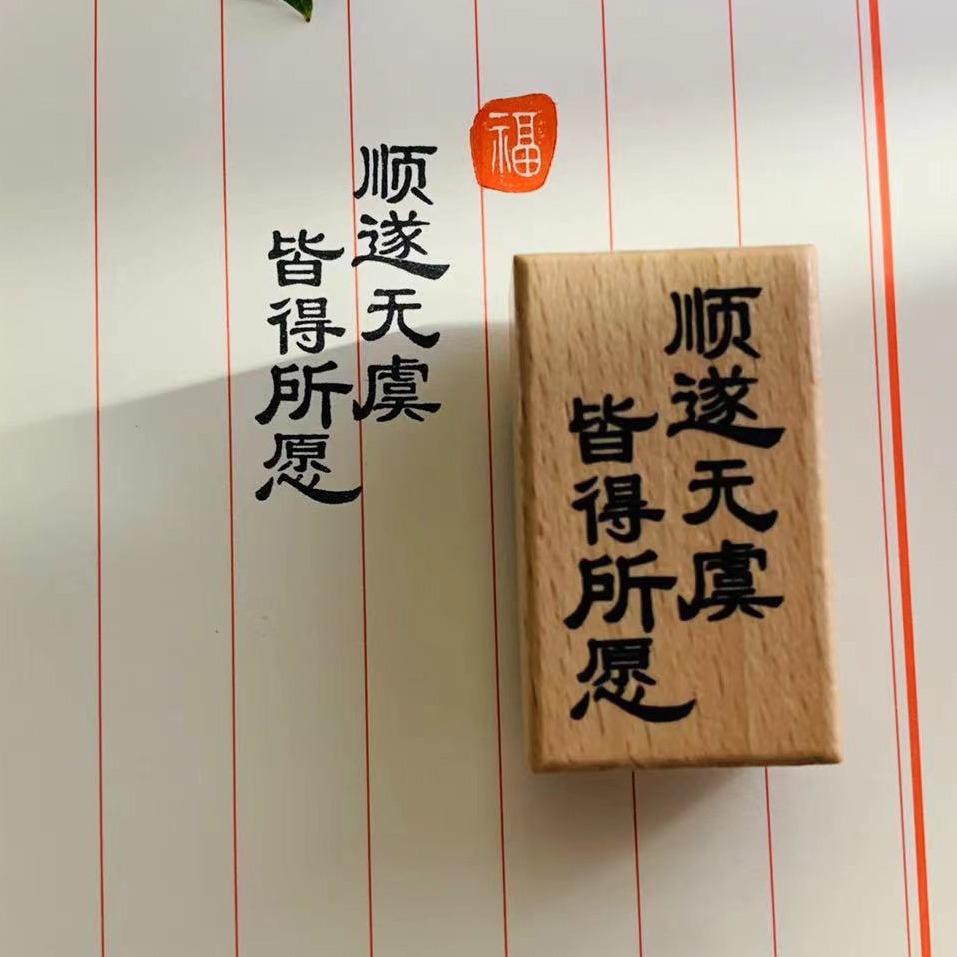 福
顺遂无虞
皆得所愿
顺遂无虞
皆得所愿